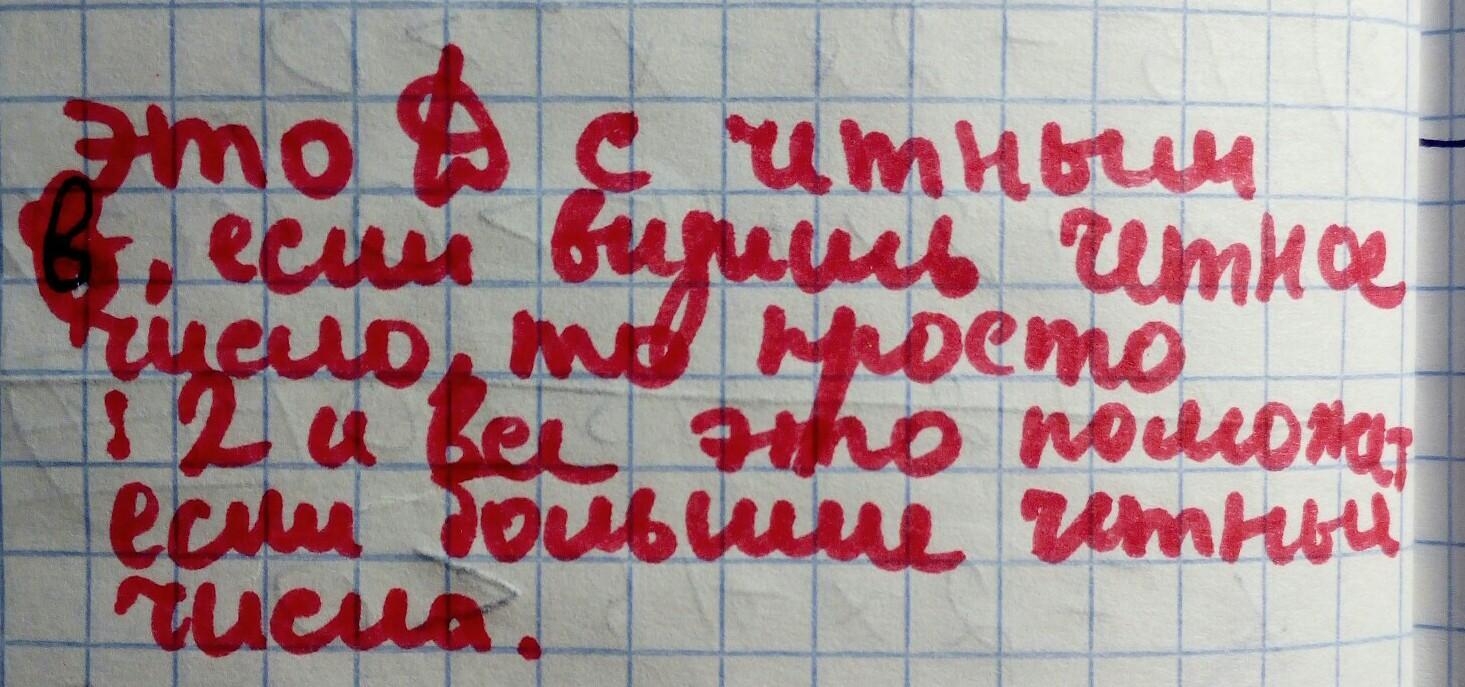 это D с читным
в, если видишь четное
число, то просто
: 2 и все это поможат
если большие четные
числа.